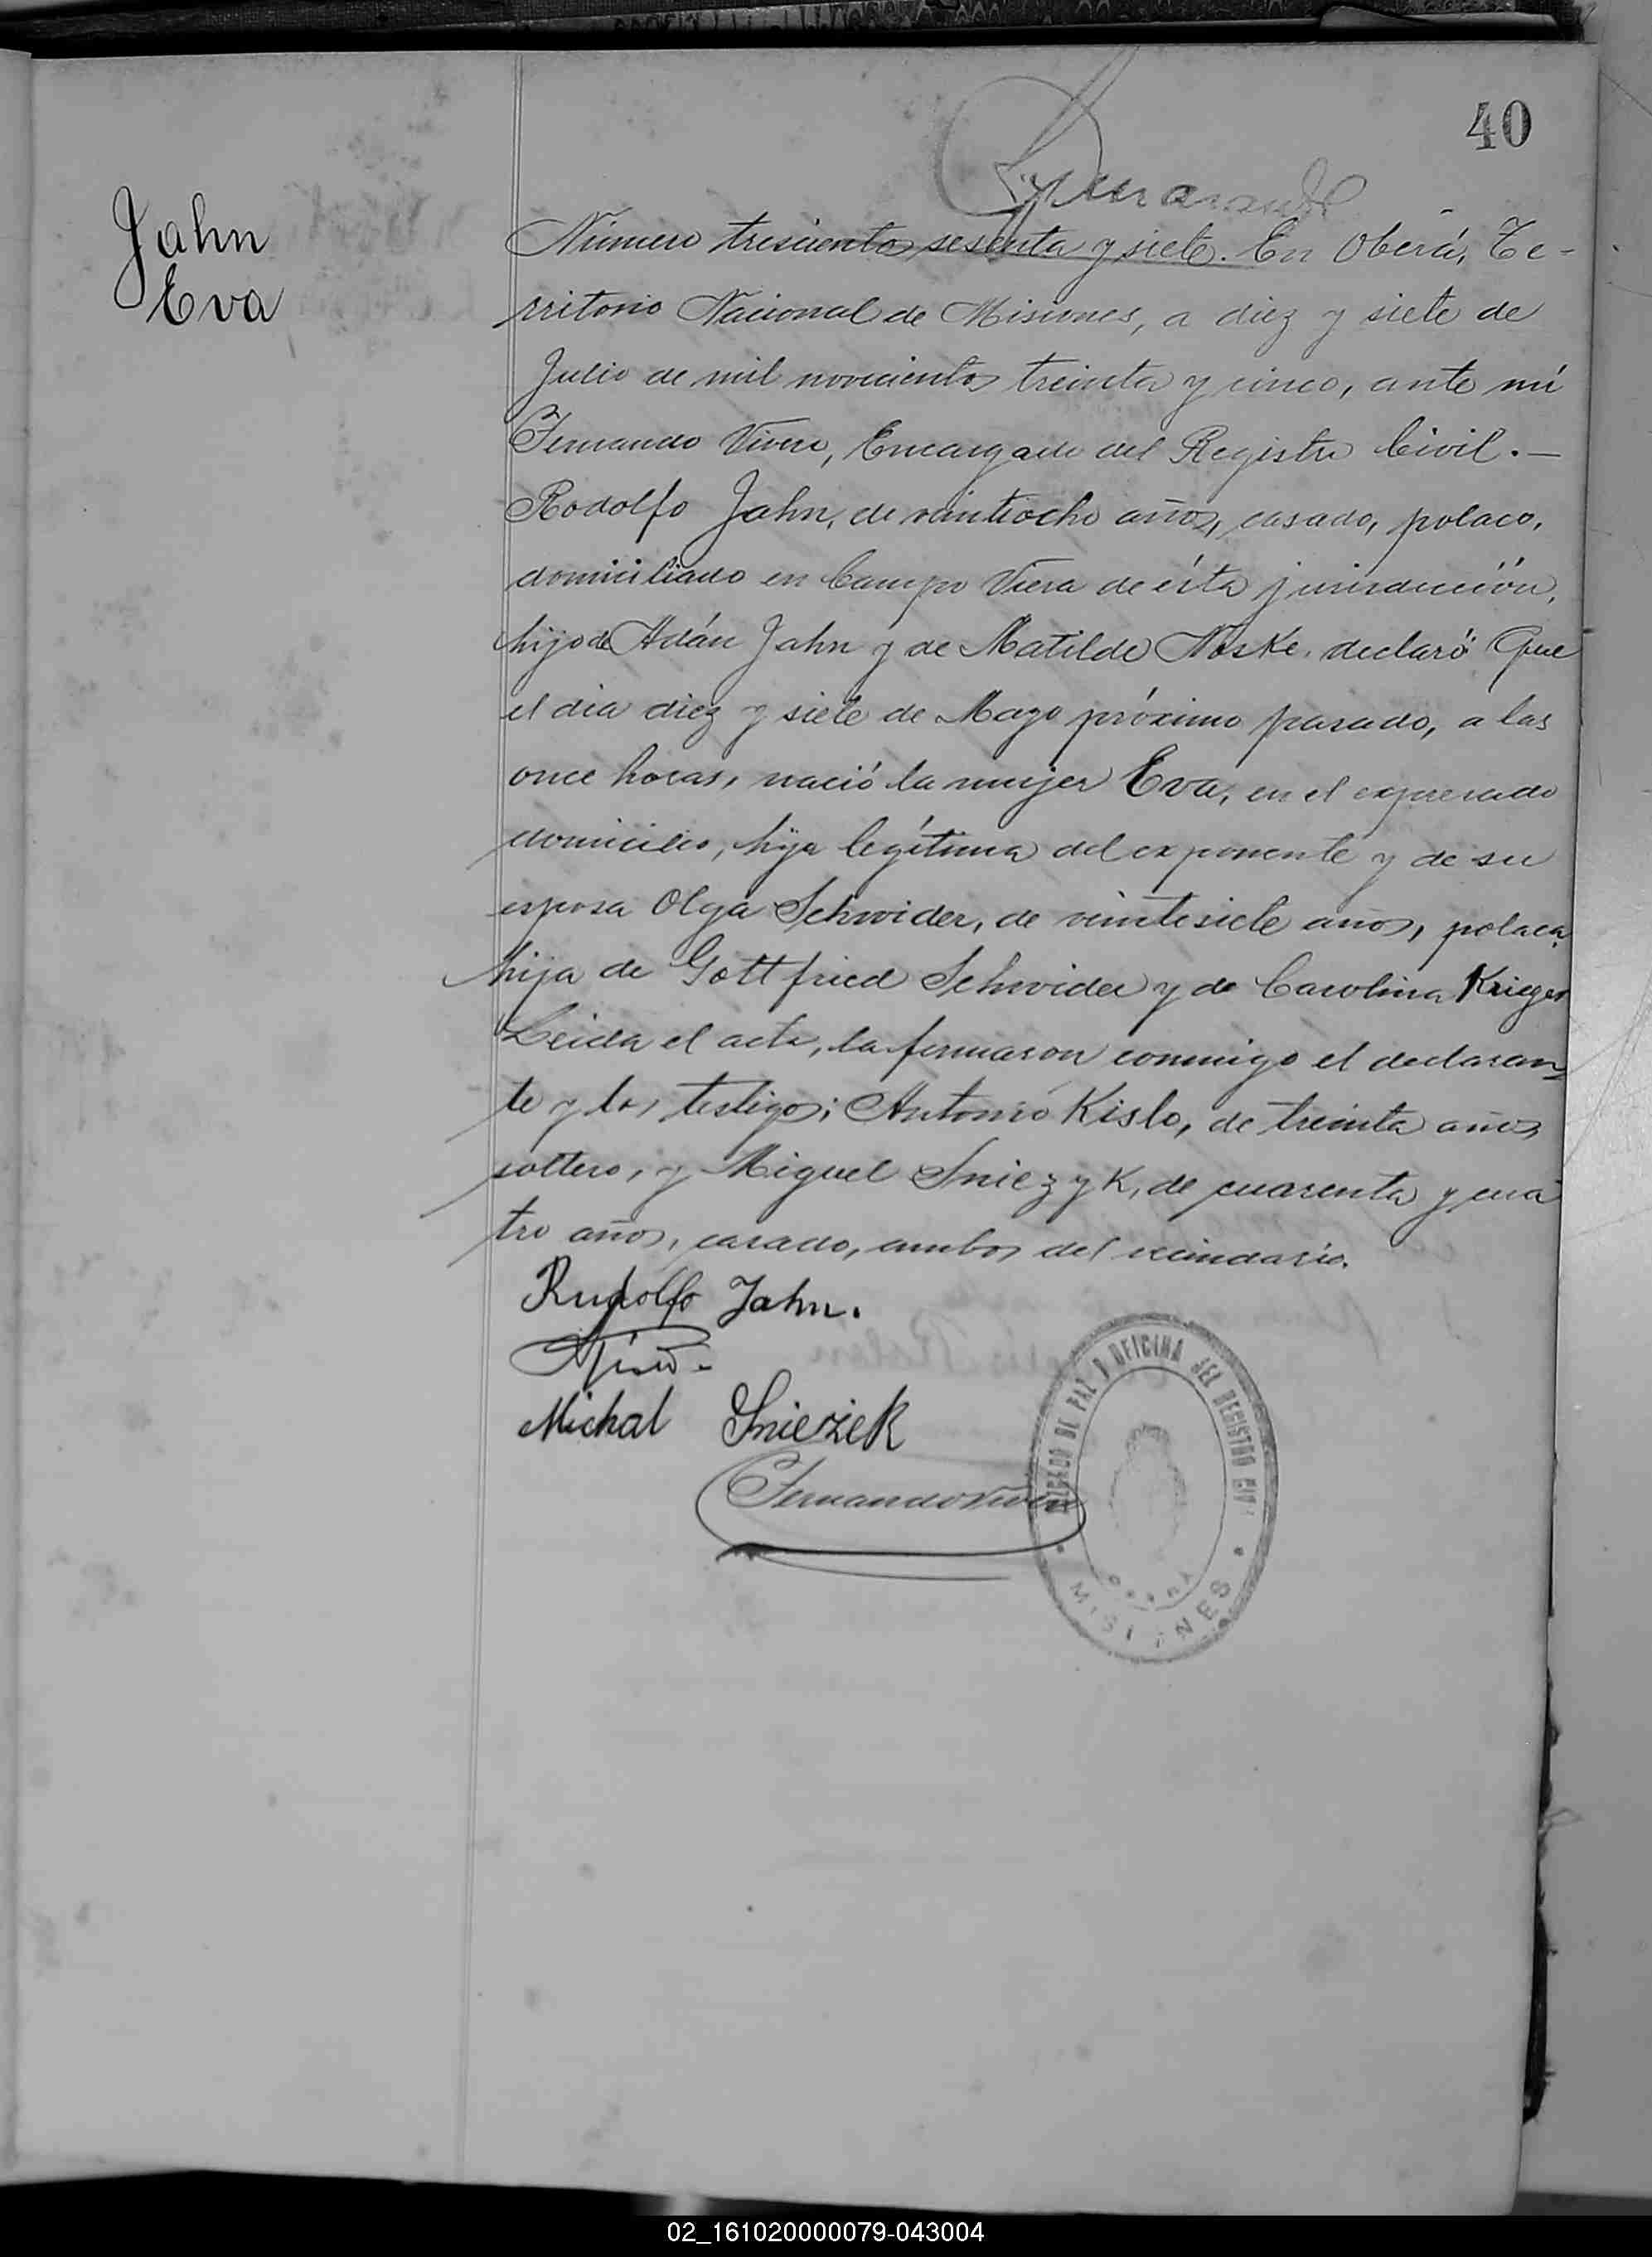 40
Jahn
Eva
Número trescientos sesenta y siete. En Oberá, Te-
rritorio Nacional de Misiones, a diez y siete de
Julio de mil novecientos treinta y cinco, ante mí
Fernando Vivero, Encargado del Registro Civil.—
Rodolfo Jahn, de veintiocho años, casado, polaco,
domiciliado en Campo Viera de ésta jurisdicción,
hijo de Adán Jahn y de Matilde Noske, declaró: Que
el dia diez y siete de Mayo próximo pasado, a las
once horas, nació la mujer Eva, en el expresado
domicilio, hija legítima del exponente y de su
esposa Olga Schwider, de veintisiete años, polaca,
hija de Gottfried Schwider y de Carolina Krieger
Leida el acta, la firmaron conmigo el declaran-
te y los testigos; Antonio Kislo, de treinta años,
soltero, y Miguel Sniezyk, de cuarenta y cua
tro años, casado, ambos del vecindario.
Rudolfo Jahn.
Michal Sniezek
Fernando Vivero
JUZGADO DE PAZ Y OFICINA DEL REGISTRO CIVIL
OBERA
MISIONES
02_161020000079-043004